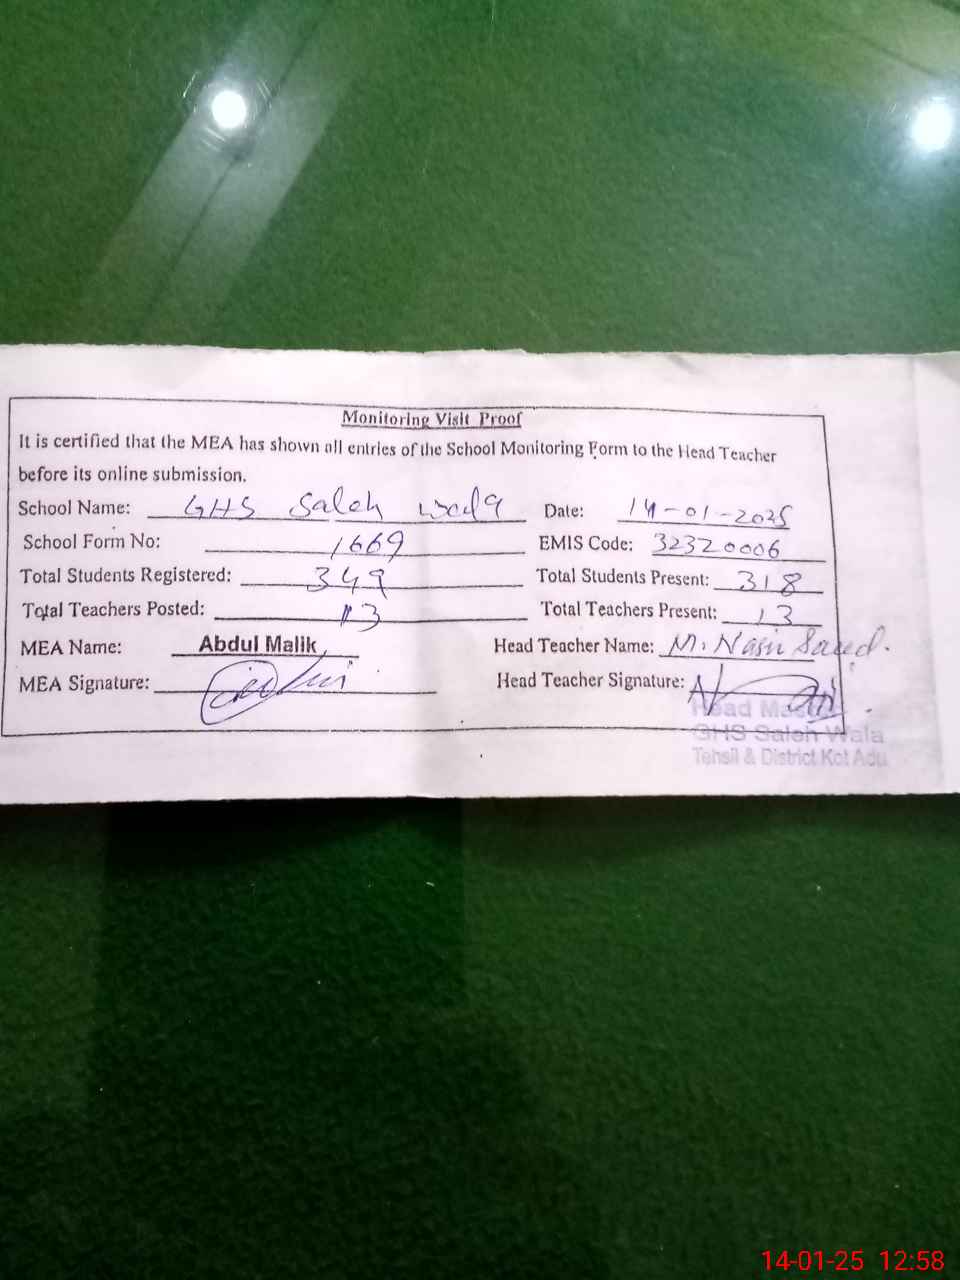 Monitoring Visit Proof
It is certified that the MEA has shown all entries of the School Monitoring Form to the Head Teacher
before its online submission.
School Name: GHS Saleh Wala Date: 14-01-2025
School Form No: 1669 EMIS Code: 32320006
Total Students Registered: 349 Total Students Present: 318
Total Teachers Posted: 13 Total Teachers Present: 13
MEA Name: Abdul Malik Head Teacher Name: M. Nasir Saeed.
MEA Signature: Head Teacher Signature:
Head Master
GHS Saleh Wala
Tehsil & District Kot Adu
14-01-25 12:58